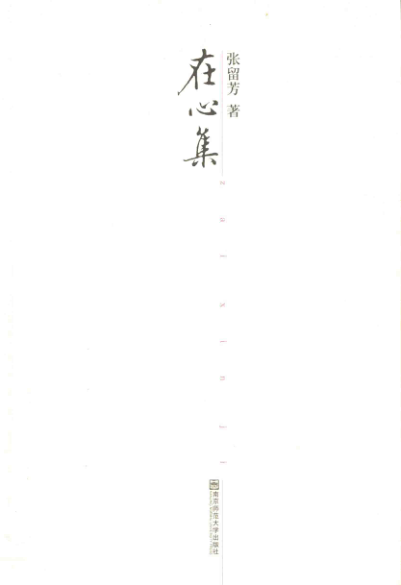 在心集
张留芳 著
z a i x i n j i
南京师范大学出版社